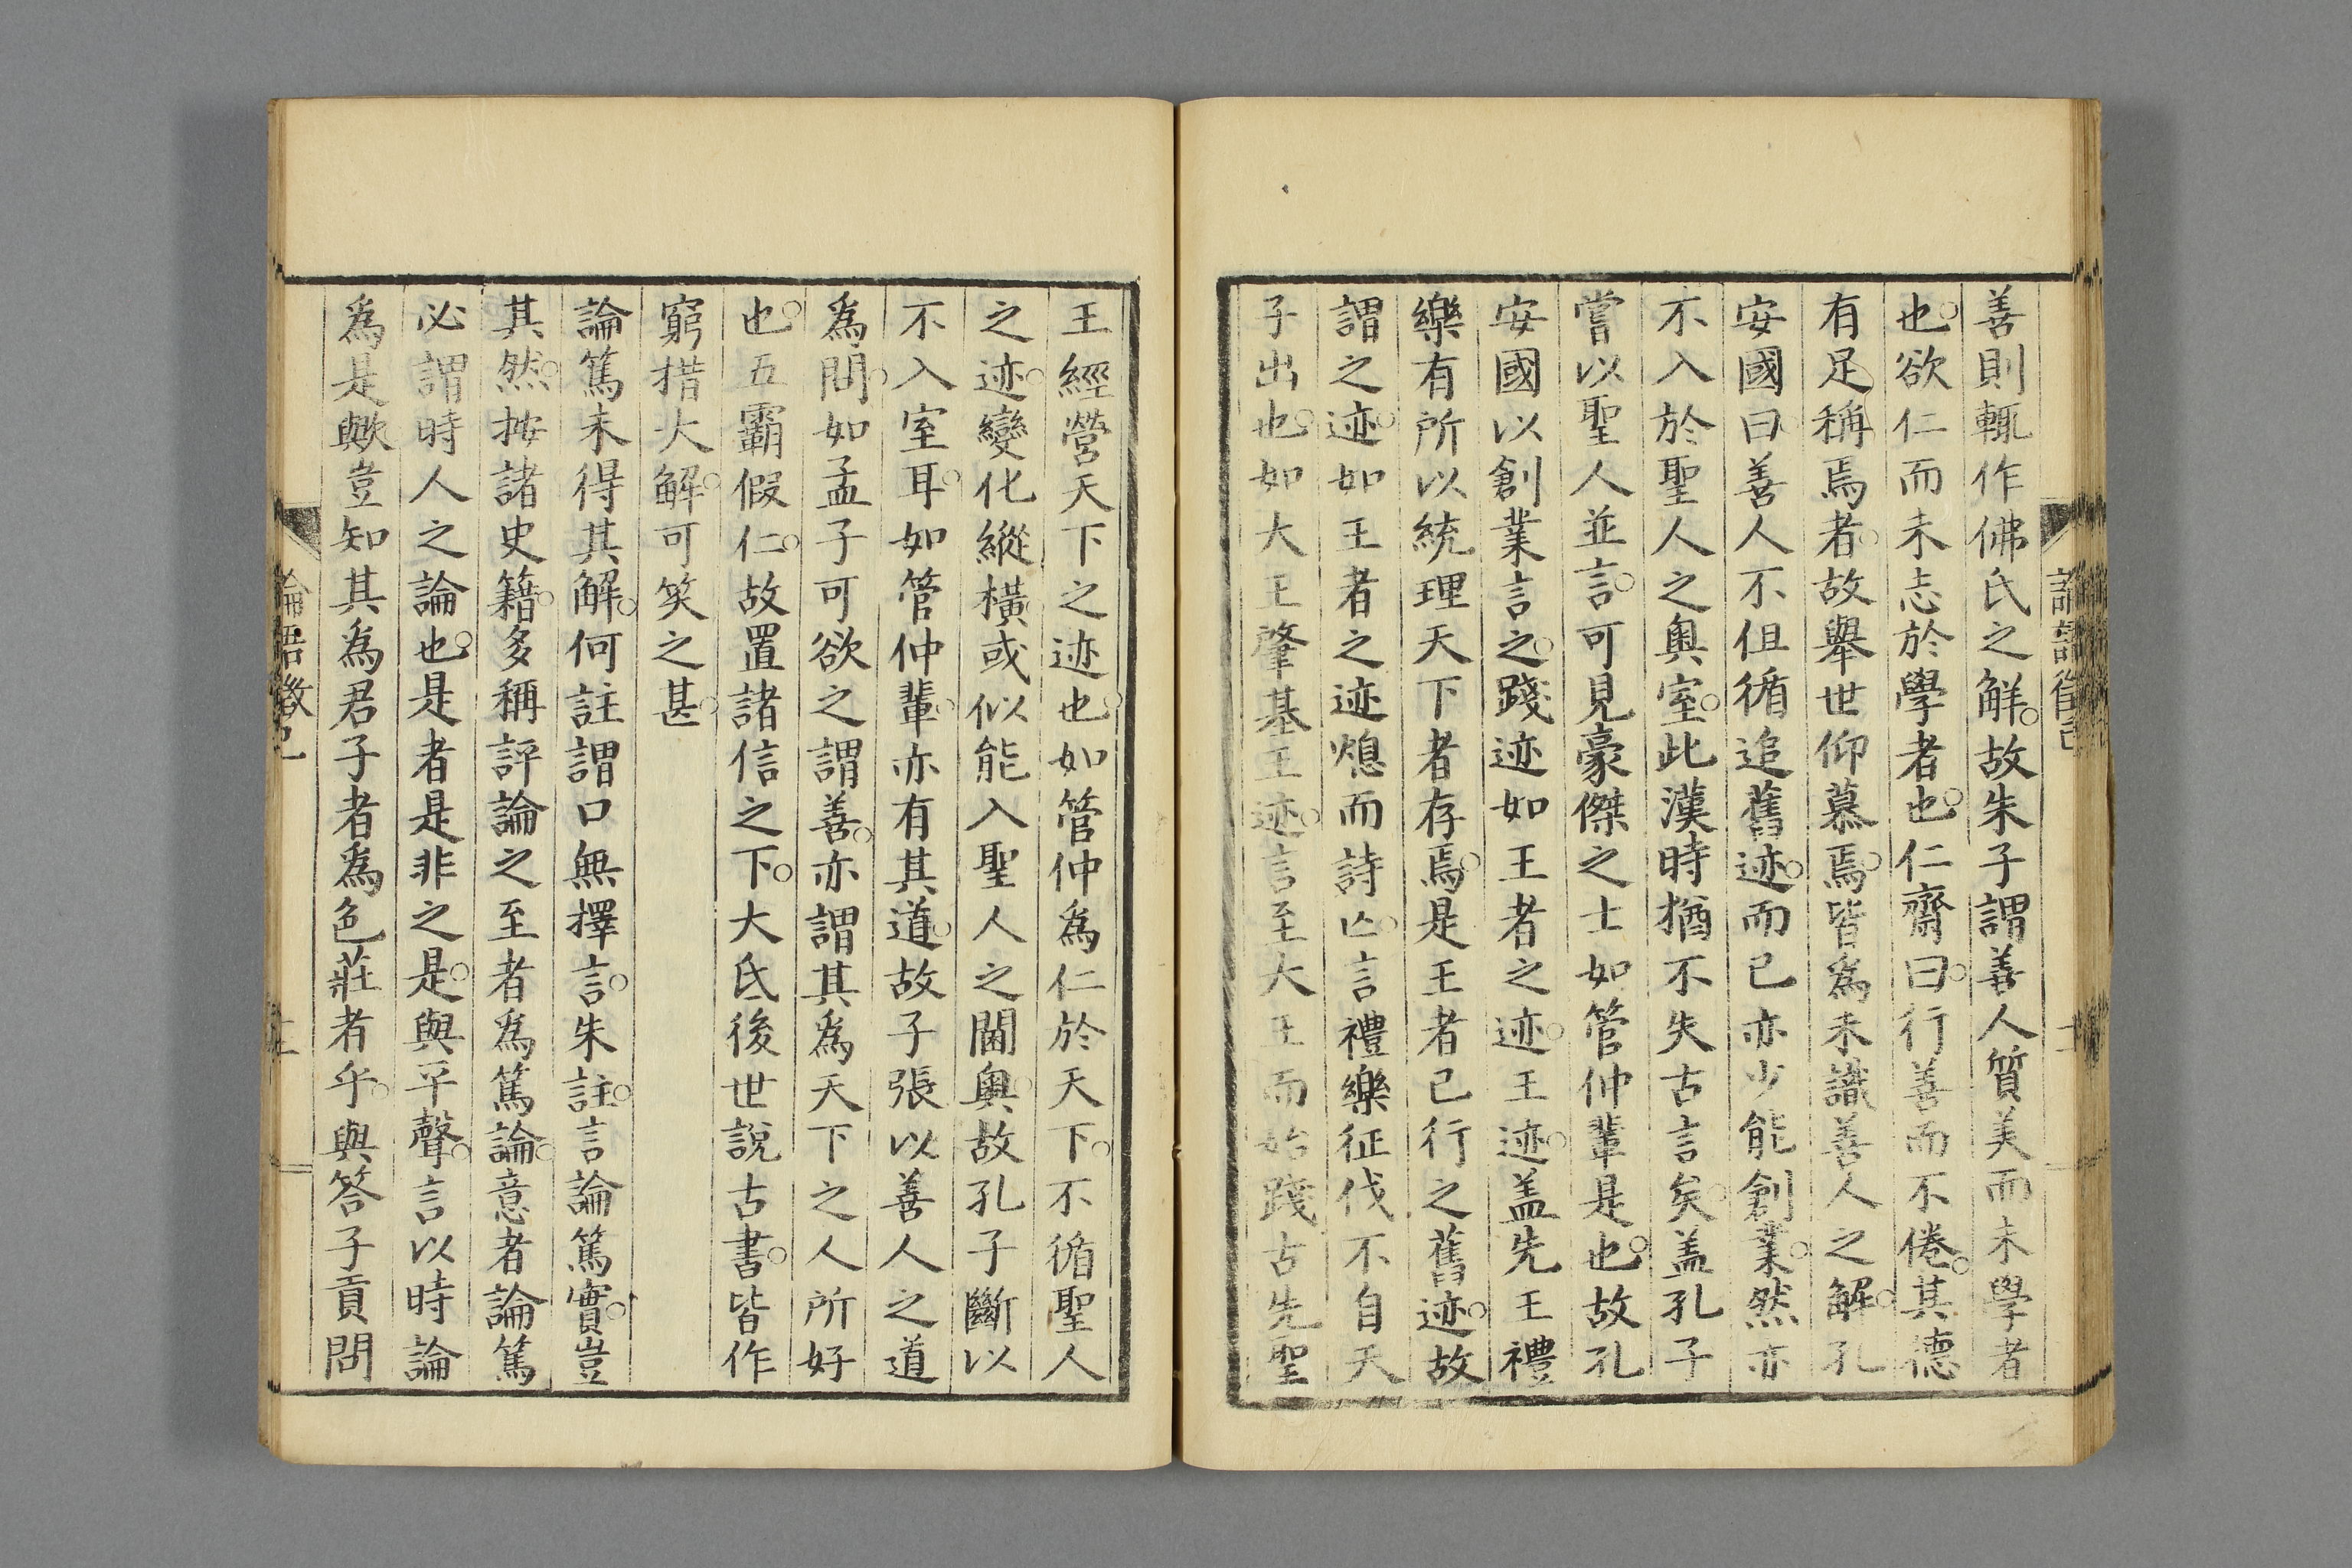 善則輒作佛氏之解。故朱子謂善人質美而未學者
也。欲仁而未志於學者也。仁齋曰。行善而不倦。其德
有足稱焉者。故舉世仰慕焉。皆爲未識善人之解。孔
安國曰。善人不但循追舊迹。而已亦少能創業。然亦
不入於聖人之奧室。此漢時猶不失古言矣。盖孔子
嘗以聖人並言。可見豪傑之士如管仲輩是也。故孔
安國以創業言之。踐迹如王者之迹。王迹。盖先王禮
樂有所以統理天下者存焉。是王者已行之舊迹。故
謂之迹。如王者之迹熄而詩亡。言禮樂征伐不自天
子出也。如大王肇基王迹。言至大王而始踐古先聖
王經營天下之迹也。如管仲爲仁於天下。不循聖人
之迹。變化縱橫。或似能入聖人之閫奧。故孔子斷以
不入室耳。如管仲輩。亦有其道。故子張以善人之道
爲問。如孟子可欲之謂善。亦謂其爲天下之人所好
也。五霸假仁。故置諸信之下。大氐後世說古書。皆作
窮措大解。可笑之甚。
論篤未得其解。何註謂口無擇言。朱註。言論篤實。豈
其然。按諸史籍。多稱評論之至者爲篤論。意者論篤
必謂時人之論也。是者是非之是。與平聲。言以時論
爲是歟。豈知其爲君子者爲色莊者乎。與答子貢問
論語徵己